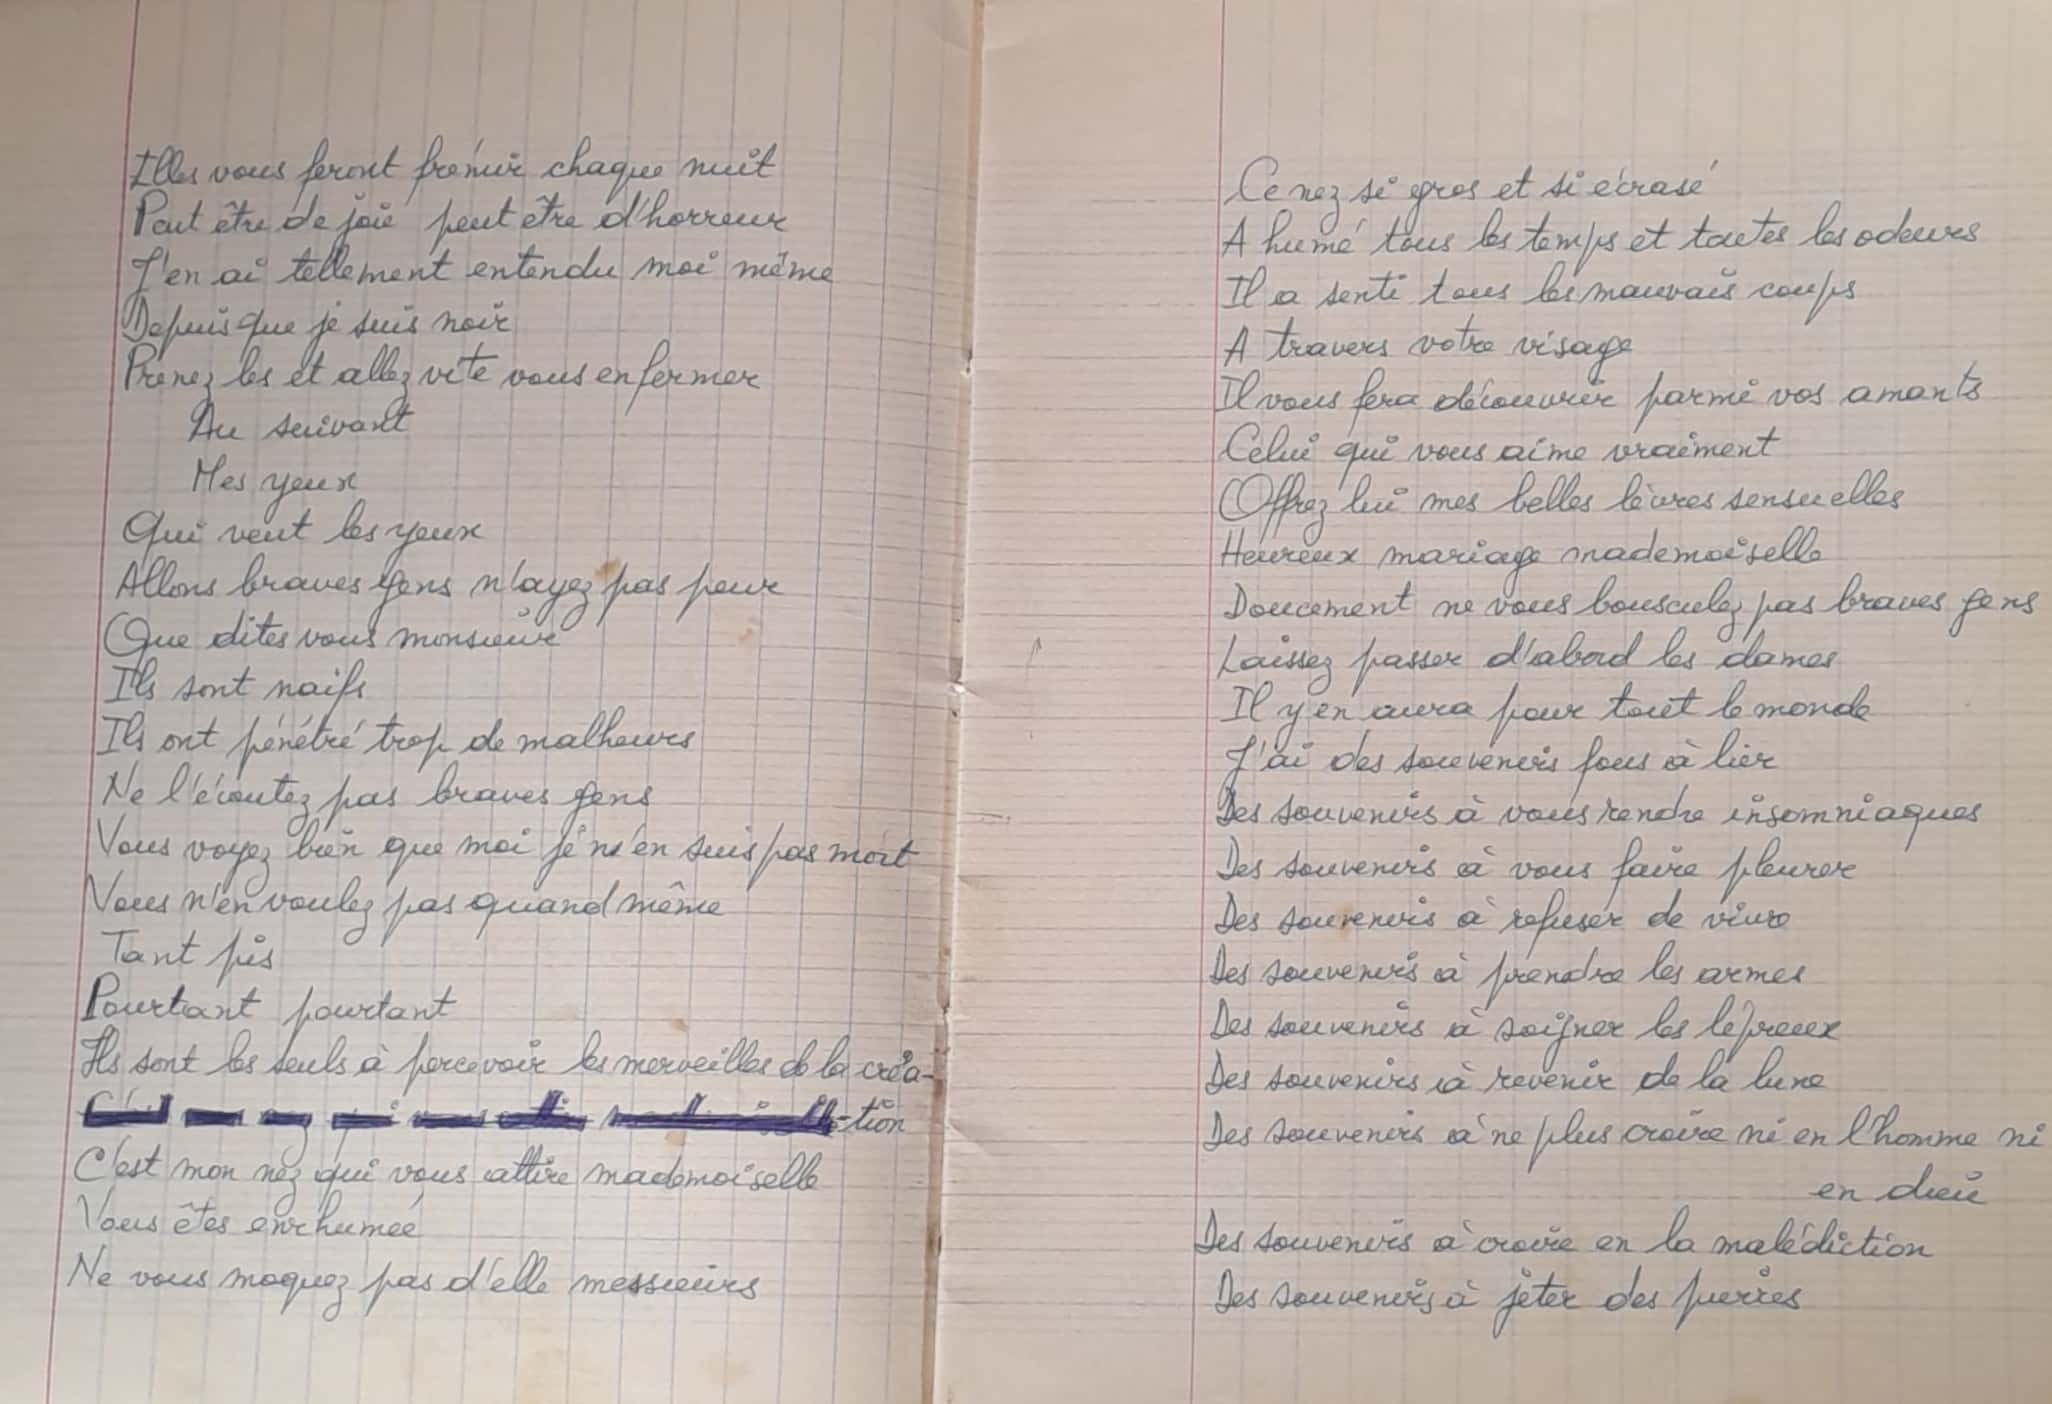 Elles vous feront frémir chaque nuit
Peut être de joie peut être d'horreur
J'en ai tellement entendu moi même
Depuis que je suis noir
Prenez les et allez vite vous enfermer
Au suivant
Mes yeux
Qui veut les yeux
Allons braves gens n'ayez pas peur
Que dites vous monsieur
Ils sont naifs
Ils ont pénétré trop de malheurs
Ne l'écoutez pas braves gens
Vous voyez bien que moi je n'en suis pas mort
Vous n'en voulez pas quand même
Tant pis
Pourtant pourtant
Ils sont les seuls à percevoir les merveilles de la créa-
-tion
C'est mon nez qui vous attire mademoiselle
Vous êtes enrhumée
Ne vous moquez pas d'elle messieurs
Ce nez si gros et si écrasé
A humé tous les temps et toutes les odeurs
Il a senti tous les mauvais coups
A travers votre visage
Il vous fera découvrir parmi vos amants
Celui qui vous aime vraiment
Offrez lui mes belles lèvres sensuelles
Heureux mariage mademoiselle
Doucement ne vous bousculez pas braves gens
Laissez passer d'abord les dames
Il y en aura pour tout le monde
J'ai des souvenirs fous à lier
Des souvenirs à vous rendre insomniaques
Des souvenirs à vous faire pleurer
Des souvenirs à refuser de vivre
Des souvenirs à prendre les armes
Des souvenirs à soigner les lépreux
Des souvenirs à revenir de la lune
Des souvenirs à ne plus croire ni en l'homme ni
en dieu
Des souvenirs à croire en la malédiction
Des souvenirs à jeter des pierres